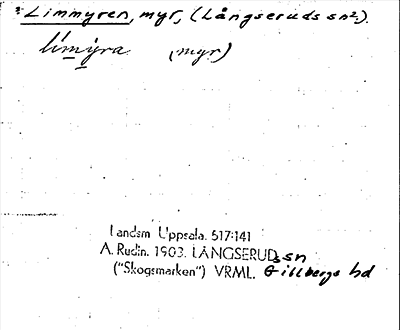 Limmyren, myr, (Långseruds snº).
limýra (myr)
Landsm Uppsala. 517:141
A. Rudin. 1903. LÅNGSERUDs sn
("Skogsmarken") VRML. Gillbergs hd